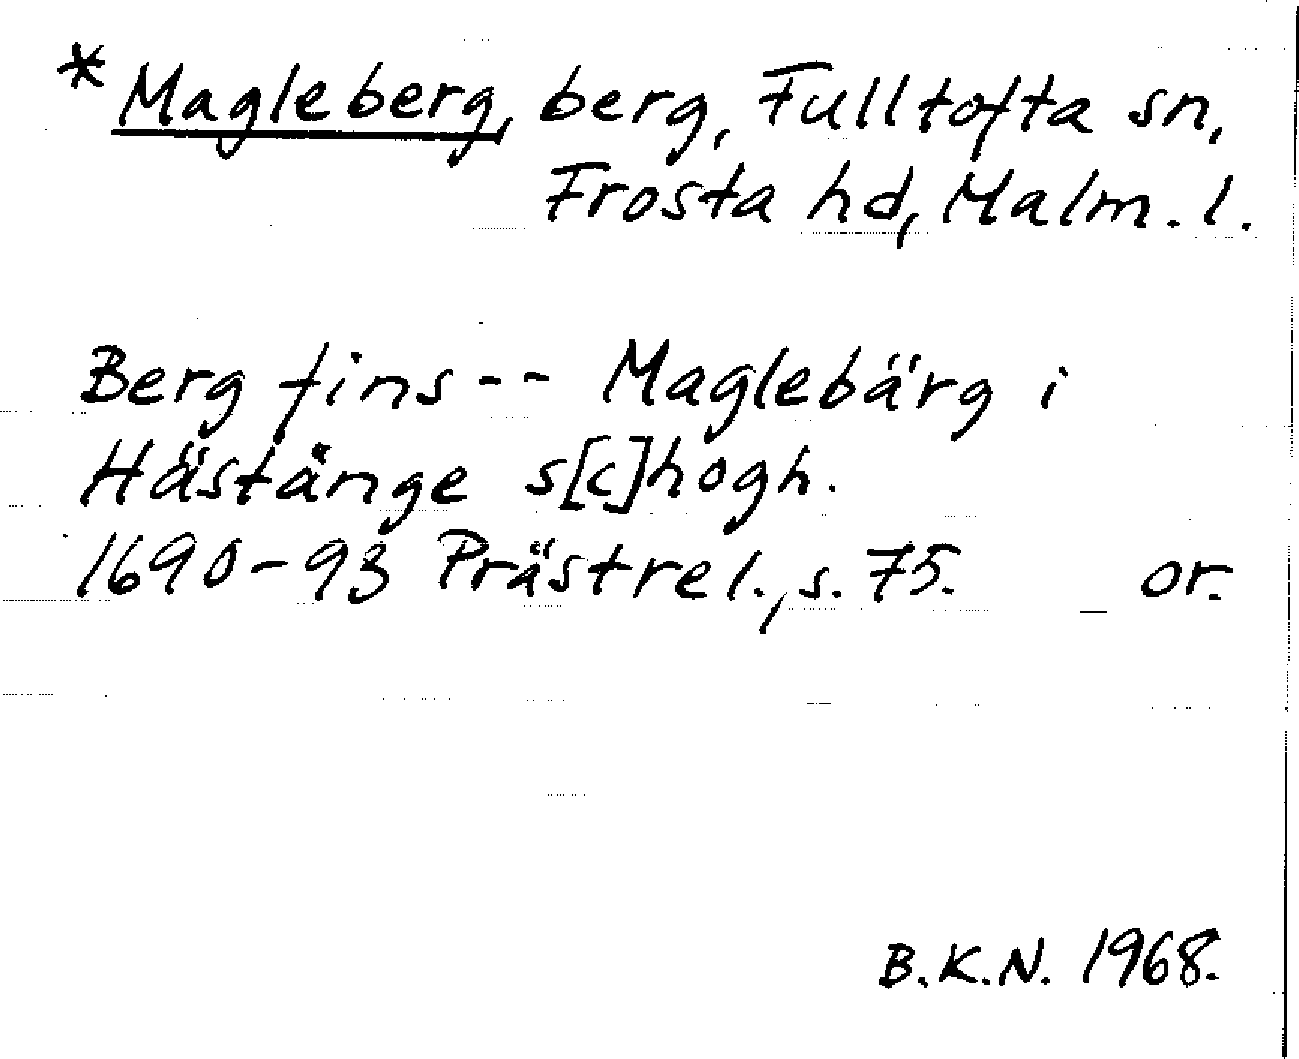 * Magleberg, berg, Fulltofta sn,
Frosta hd, Malm. l.
Berg fins -- Maglebärg i
Hästänge s[c]hogh.
1690-93 Prästrel., s. 75. or.
B.K.N. 1968.